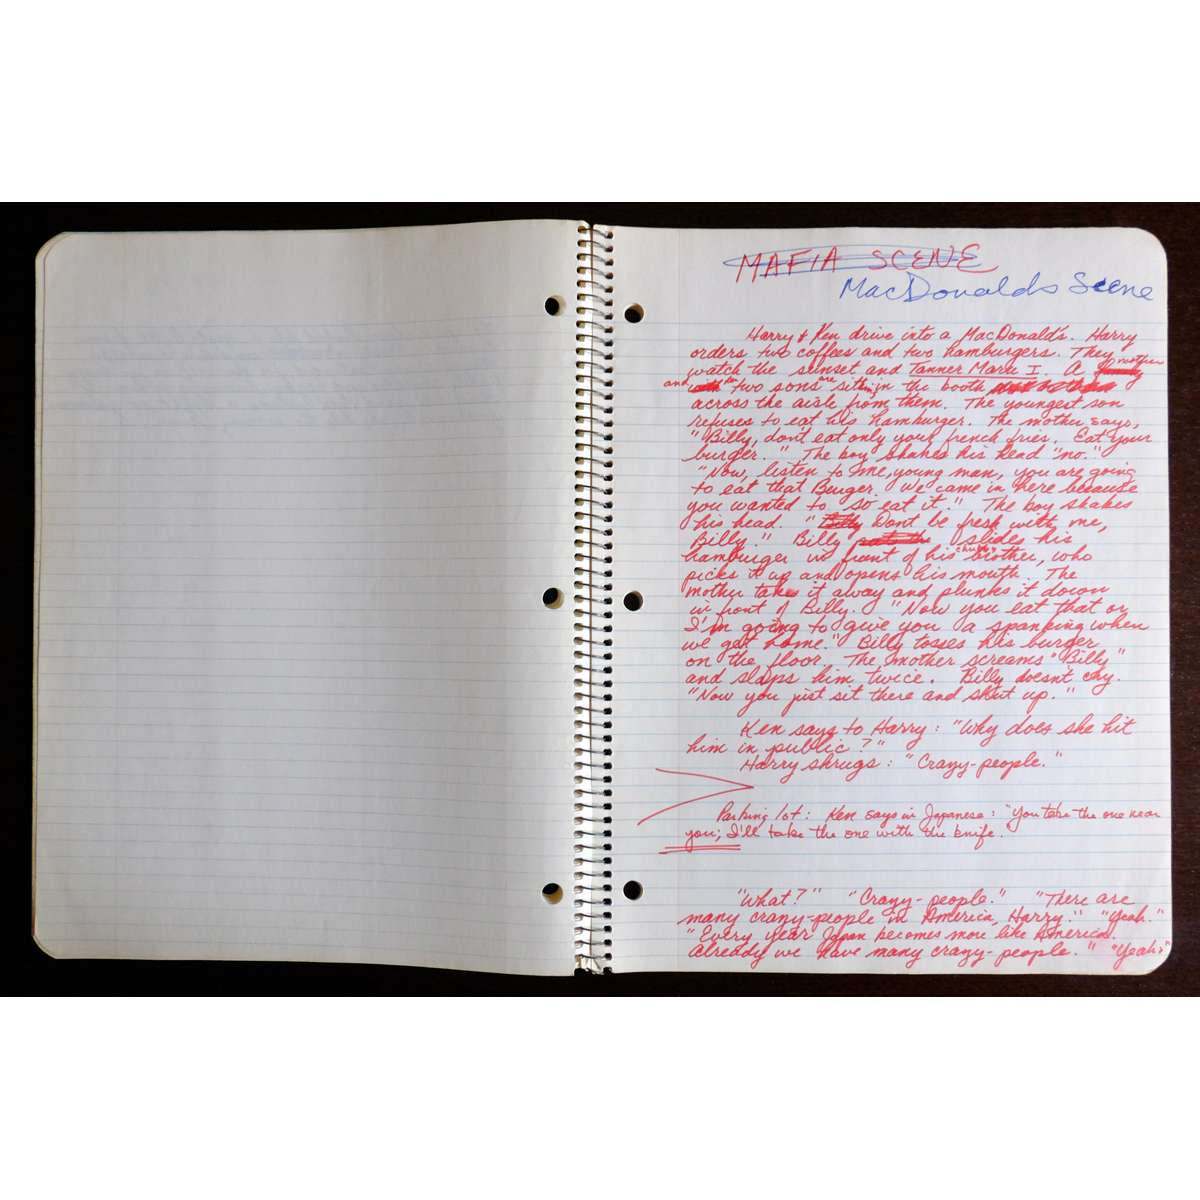 MAFIA SCENE
MacDonalds Scene
Harry + Ken drive into a MacDonald's. Harry
orders two coffees and two hamburgers. They
watch the sunset and Tanner Maru I. A mother
and her two sons are sitting in the booth
across the aisle from them. The youngest son
refuses to eat his hamburger. The mother says,
"Billy, don't eat only your french fries. Eat your
burger." The boy shakes his head "no."
"Now, listen to me, young man, you are going
to eat that Burger. We came in here because
you wanted to so eat it." The boy shakes
his head. "Billy Dont be fresh with me,
Billy." Billy slides his
hamburger in front of his chubby brother, who
picks it up and opens his mouth. The
mother takes it away and plunks it down
in front of Billy. "Now you eat that or
I'm going to give you a spanking when
we get home." Billy tosses his burger
on the floor. The mother screams "Billy"
and slaps him twice. Billy doesn't cry.
"Now you just sit there and shut up."
Ken says to Harry: "Why does she hit
him in public?"
Harry shrugs: "Crazy-people."
Parking lot: Ken says in Japanese: "You take the one near
you; I'll take the one with the knife."
"What?" "Crazy-people." "There are
many crazy-people in America, Harry." "Yeah."
"Every year Japan becomes more like America.
Already we have many crazy-people." "Yeah?"